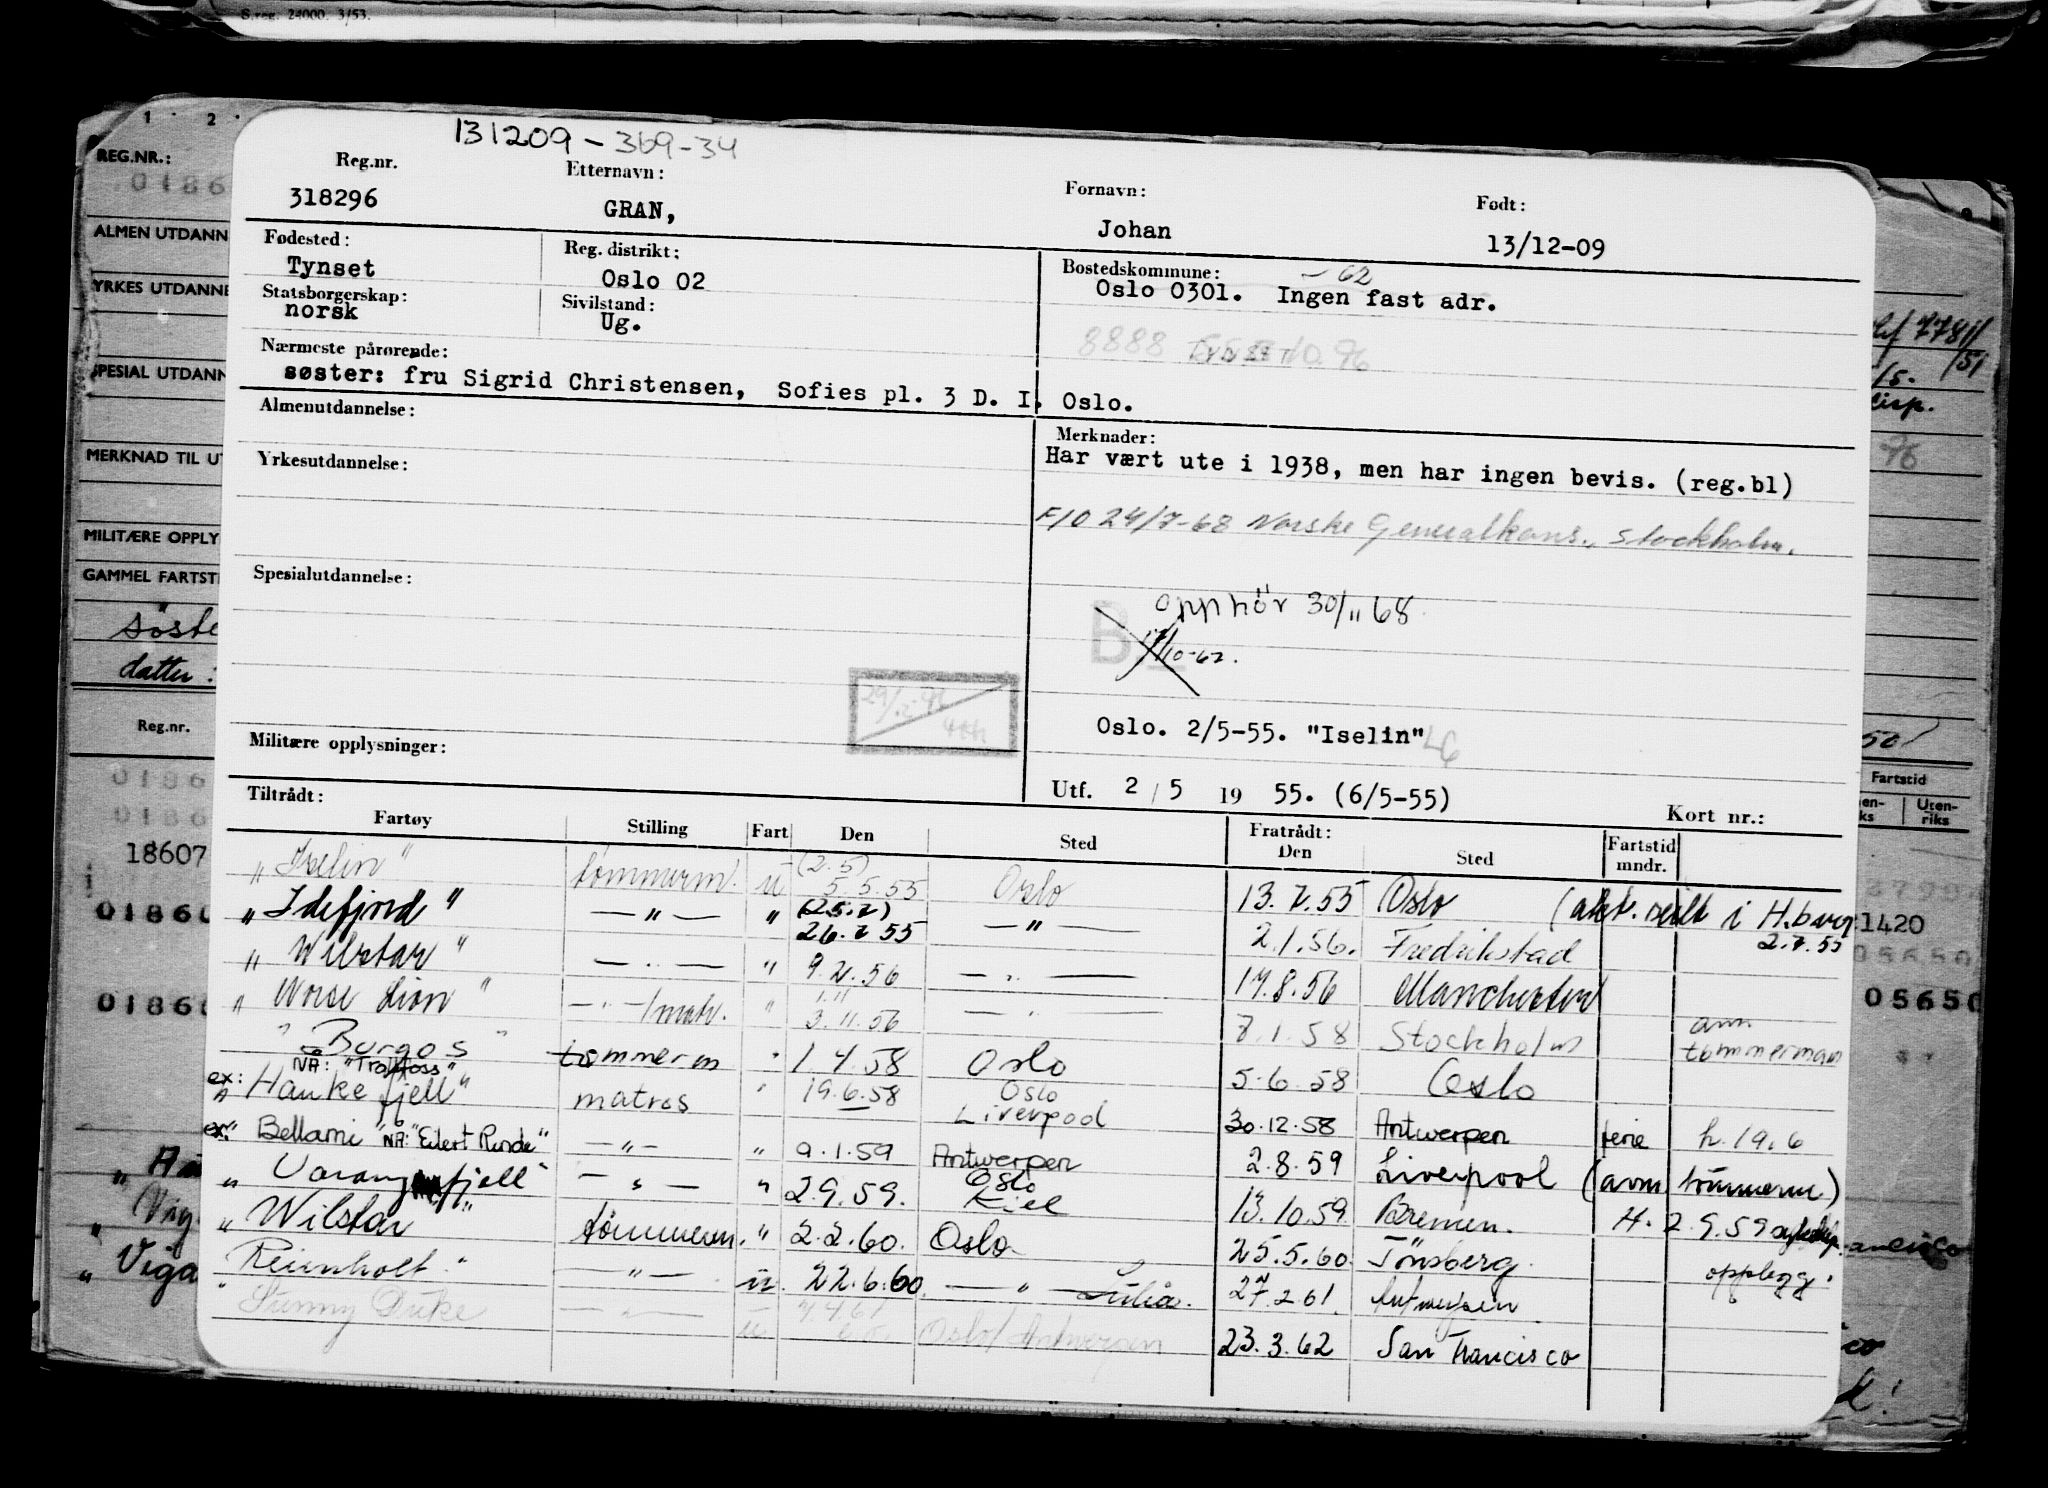 S.reg. 24000. 3/53.
1 . 2 .
131209 - 369-34
REG.NR.:
Reg.nr. Etternavn: Fornavn: Født:
0186
318296 GRAN, Johan 13/12-09
ALMEN UTDANN
Fødested: Reg. distrikt: Bostedskommune: - 62
Tynset Oslo 02 Oslo 0301. Ingen fast adr.
YRKES UTDANNE
Statsborgerskap: Sivilstand:
norsk Ug.
8888 10.96
Nærmeste pårørende:
SPESIAL UTDANN
søster: fru Sigrid Christensen, Sofies pl. 3 D. I. Oslo.
Almenutdannelse: Merknader:
MERKNAD TIL UT
Yrkesutdannelse: Har vært ute i 1938, men har ingen bevis. (reg.bl)
F/O 24/7-68 Norske Generalkons., Stockholm.
MILITÆRE OPPLY
GAMMEL FARTST
Spesialutdannelse:
opphör 30/11 68.
søste
B 17/10-62.
datter:
Reg.nr.
Oslo. 2/5-55. "Iselin"
Militære opplysninger:
Utf. 2/5 19 55. (6/5-55) Kort nr.:
Fartstid
Uten-
riks
Tiltrådt: Fratrådt:
Fartøy Stilling Fart Den Sted Den Sted Fartstid mndr.
„ Iselin" tømmerm. u (2.5) 5.5.55 Oslo 13.7.55 Oslo (akt. seilt i H.burg 2.7.55
„ Idefjord" — " — " (25.7) 26.7 55 — " — 2.1.56. Fredrikstad
„ Wilstar" — " — " 9.2.56 — " — 17.8.56 Manchester
" Norse Lion" — " —/matr. " 1.11 3.11.56 — " — 7.1.58 Stockholm avm. tømmermann
" Burgos " tømmerm " 1.4.58 Oslo 5.6.58 Oslo
NÅ: "Trolfoss"
ex: Haukefjell" matros " 19.6.58 Oslo Liverpool 30.12.58 Antwerpen ferie h. 19.6
ex" Bellami" NÅ: "Eilert Rinde" — " — " 9.1.59 Antwerpen 2.8.59 Liverpool (avm tömmerm)
„ Varangerfjell" — " — " 2.9.59. Oslo Kiel 13.10.59 Bremen. H. 2.9.59
„ Wilstar" tømmerm. " 2.2.60. Oslo 25.5.60. Tönsberg. opplegg.
" Reinholt" — " — u 22.6.60. — " — Luleå. 27.2.61. Antwerpen
" Sunny Duke — " — u 7.4.61 Oslo/Antwerpen 23.3.62 San Francisco
18607
1420
05650